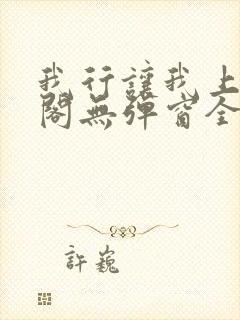 我行讓我上
閣無彈窗全
許巍